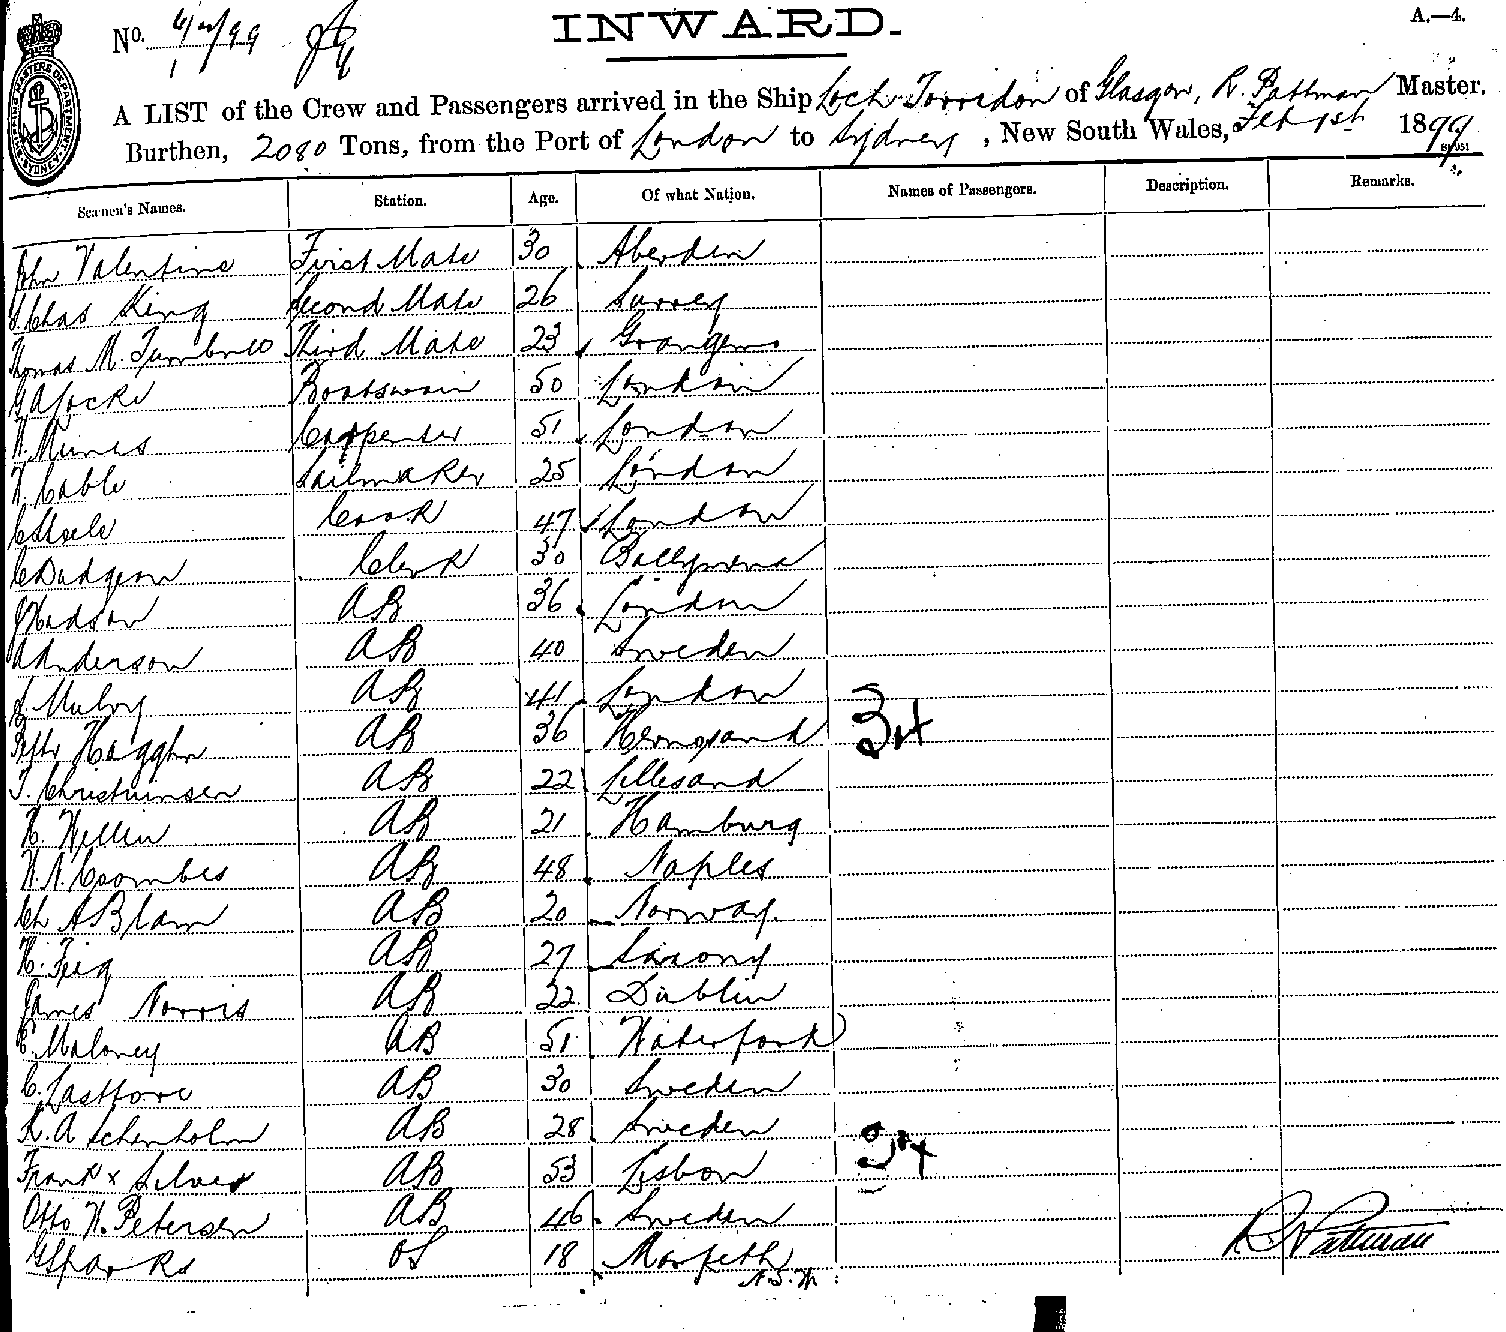 INWARD.
A.—4.
No. 4/2/99
A LIST of the Crew and Passengers arrived in the Ship Loch Torridon of Glasgow, R. Pattman Master,
Burthen, 2080 Tons, from the Port of London to Sydney, New South Wales, Feb 1st 1899
Seamen's Names. Station. Age. Of what Nation. Names of Passengers. Description. Remarks.
John Valentine First Mate 30 Aberden
Chas King Second Mate 26 Surrey
Thomas M. Third Mate 23
Boatswain 50 London
Carpenter 51 London
Cable Sailmaker 25 London
C Steele Cook 47 London
C Dudgeon Clerk 30
J Hodson AB 36 London
A Anderson AB 40 Sweden
AB 41 London
AB 36
34
T. Christiansen AB 22 Lillesand
AB 21 Hamburg
Coombes AB 48 Naples
AB 20 Norway.
AB 27 Saxony
James Norris AB 22 Dublin
Maloney AB 51 Waterford
C. AB 30 Sweden
AB 28 Sweden
34
Frank x Silver AB 53 Lisbon
Otto W. Petersen AB 46 Sweden
G Sparks OS 18 Morpeth
N.S.W.
R Pattman